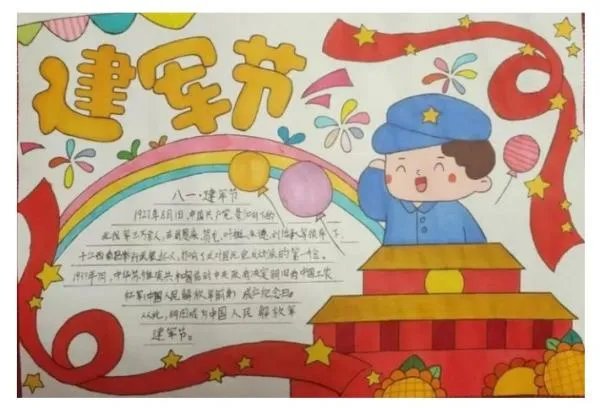 建军节
八一·建军节
1927年8月1日,中国共产党
北伐军三万余人,在周恩来、贺龙、叶挺、朱德、刘伯承等领导下,
于江西南昌举行武装起义,打响了反对国民党反动派的第一枪。
1933年 中华苏维埃共和国临时中央政府决定 8月1日为中国工农
红军(中国人民解放军前身)成立纪念日。
从此,8月1日成为中国人民解放军
建军节。